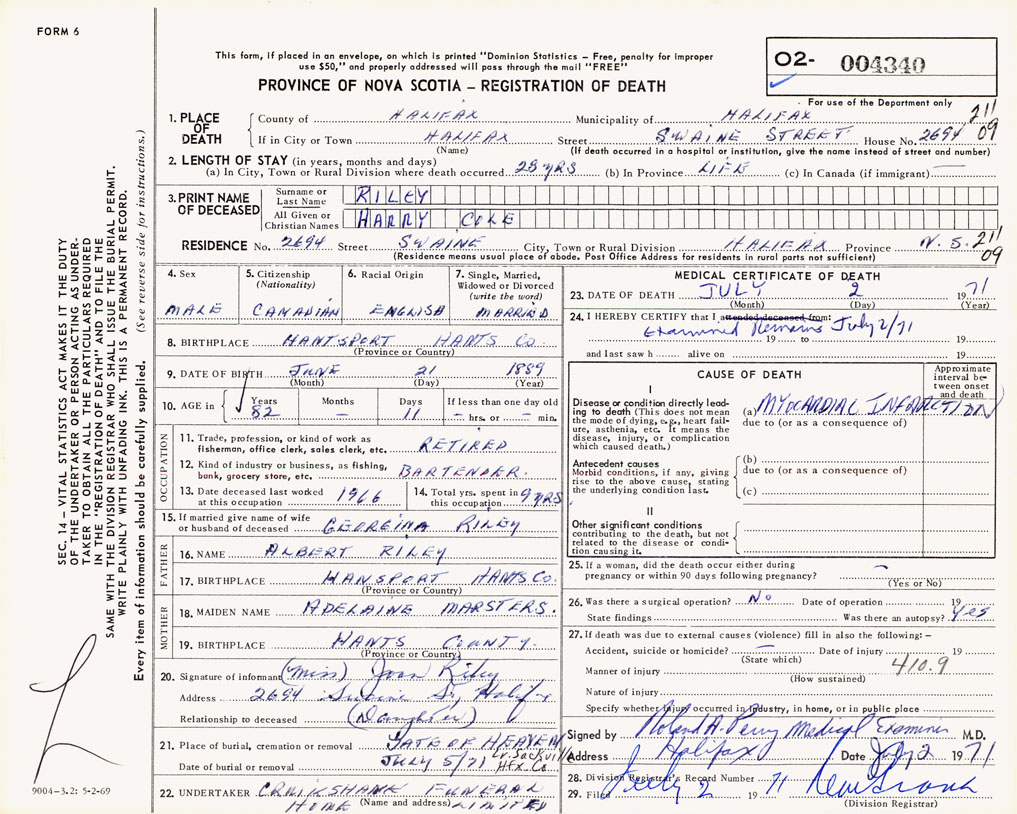 FORM 6
This form, if placed in an envelope, on which is printed "Dominion Statistics – Free, penalty for improper
use $50," and properly addressed will pass through the mail "FREE"
PROVINCE OF NOVA SCOTIA – REGISTRATION OF DEATH
O2- 004340
For use of the Department only
1. PLACE OF DEATH
County of HALIFAX Municipality of HALIFAX 211
If in City or Town HALIFAX Street SWAINE STREET House No. 2694 09
(Name) (If death occurred in a hospital or institution, give the name instead of street and number)
2. LENGTH OF STAY (in years, months and days)
(a) In City, Town or Rural Division where death occurred 28 YRS (b) In Province LIFE (c) In Canada (if immigrant)
3. PRINT NAME OF DECEASED
Surname or Last Name RILEY
All Given or Christian Names HARRY COLE
RESIDENCE No. 2694 Street SWAINE City, Town or Rural Division HALIFAX Province N.S. 211
(Residence means usual place of abode. Post Office Address for residents in rural parts not sufficient) 09
4. Sex MALE
5. Citizenship (Nationality) CANADIAN
6. Racial Origin ENGLISH
7. Single, Married, Widowed or Divorced (write the word) MARRIED
8. BIRTHPLACE HANTSPORT HANTS CO.
(Province or Country)
9. DATE OF BIRTH JUNE 21 1889
(Month) (Day) (Year)
10. AGE in Years 82 Months – Days 11 If less than one day old – hrs. or – min.
OCCUPATION
11. Trade, profession, or kind of work as fisherman, office clerk, sales clerk, etc. RETIRED
12. Kind of industry or business, as fishing, bank, grocery store, etc. BARTENDER.
13. Date deceased last worked at this occupation 1966
14. Total yrs. spent in this occupation 9 YRS
15. If married give name of wife or husband of deceased GEORGINA RILEY
FATHER
16. NAME ALBERT RILEY
17. BIRTHPLACE HANSPORT HANTS CO.
(Province or Country)
MOTHER
18. MAIDEN NAME ADELAINE MARSTERS.
19. BIRTHPLACE HANTS COUNTY.
(Province or Country)
20. Signature of informant (Miss) Joan Riley
Address 2694 Swaine St, Halifax
Relationship to deceased (Daughter)
21. Place of burial, cremation or removal GATE OF HEAVEN Lr. Sackville
Date of burial or removal JULY 5/71 Hfx. Co.
22. UNDERTAKER CRUIKSHANK FUNERAL
HOME (Name and address) LIMITED
MEDICAL CERTIFICATE OF DEATH
23. DATE OF DEATH JULY 2 1971
(Month) (Day) (Year)
24. I HEREBY CERTIFY that I attended deceased from:
Examined Remains July 2/71
19 to 19
and last saw h alive on 19
CAUSE OF DEATH
Approximate interval between onset and death
I
Disease or condition directly leading to death (This does not mean the mode of dying, e.g., heart failure, asthenia, etc. It means the disease, injury, or complication which caused death.)
(a) MYOCARDIAL INFARCTION
due to (or as a consequence of)
Antecedent causes
Morbid conditions, if any, giving rise to the above cause, stating the underlying condition last.
(b)
due to (or as a consequence of)
(c)
II
Other significant conditions
contributing to the death, but not related to the disease or condition causing it.
25. If a woman, did the death occur either during
pregnancy or within 90 days following pregnancy? –
(Yes or No)
26. Was there a surgical operation? No Date of operation 19
State findings Was there an autopsy? Yes
27. If death was due to external causes (violence) fill in also the following: –
Accident, suicide or homicide? – Date of injury 19
(State which)
Manner of injury 410.9
(How sustained)
Nature of injury
Specify whether injury occurred in industry, in home, or in public place
Signed by Roland A. Perry Medical Examiner M.D.
Address Halifax Date July 2 1971
28. Division Registrar's Record Number
29. Filed July 2 19 71
(Division Registrar)
SEC. 14 – VITAL STATISTICS ACT MAKES IT THE DUTY
OF THE UNDERTAKER OR PERSON ACTING AS UNDER-
TAKER TO OBTAIN ALL THE PARTICULARS REQUIRED
IN THE "REGISTRATION OF DEATH" AND TO FILE THE
SAME WITH THE DIVISION REGISTRAR WHO SHALL ISSUE THE BURIAL PERMIT.
WRITE PLAINLY WITH UNFADING INK. THIS IS A PERMANENT RECORD.
Every item of information should be carefully supplied. (See reverse side for instructions.)
9004-3.2: 5-2-69